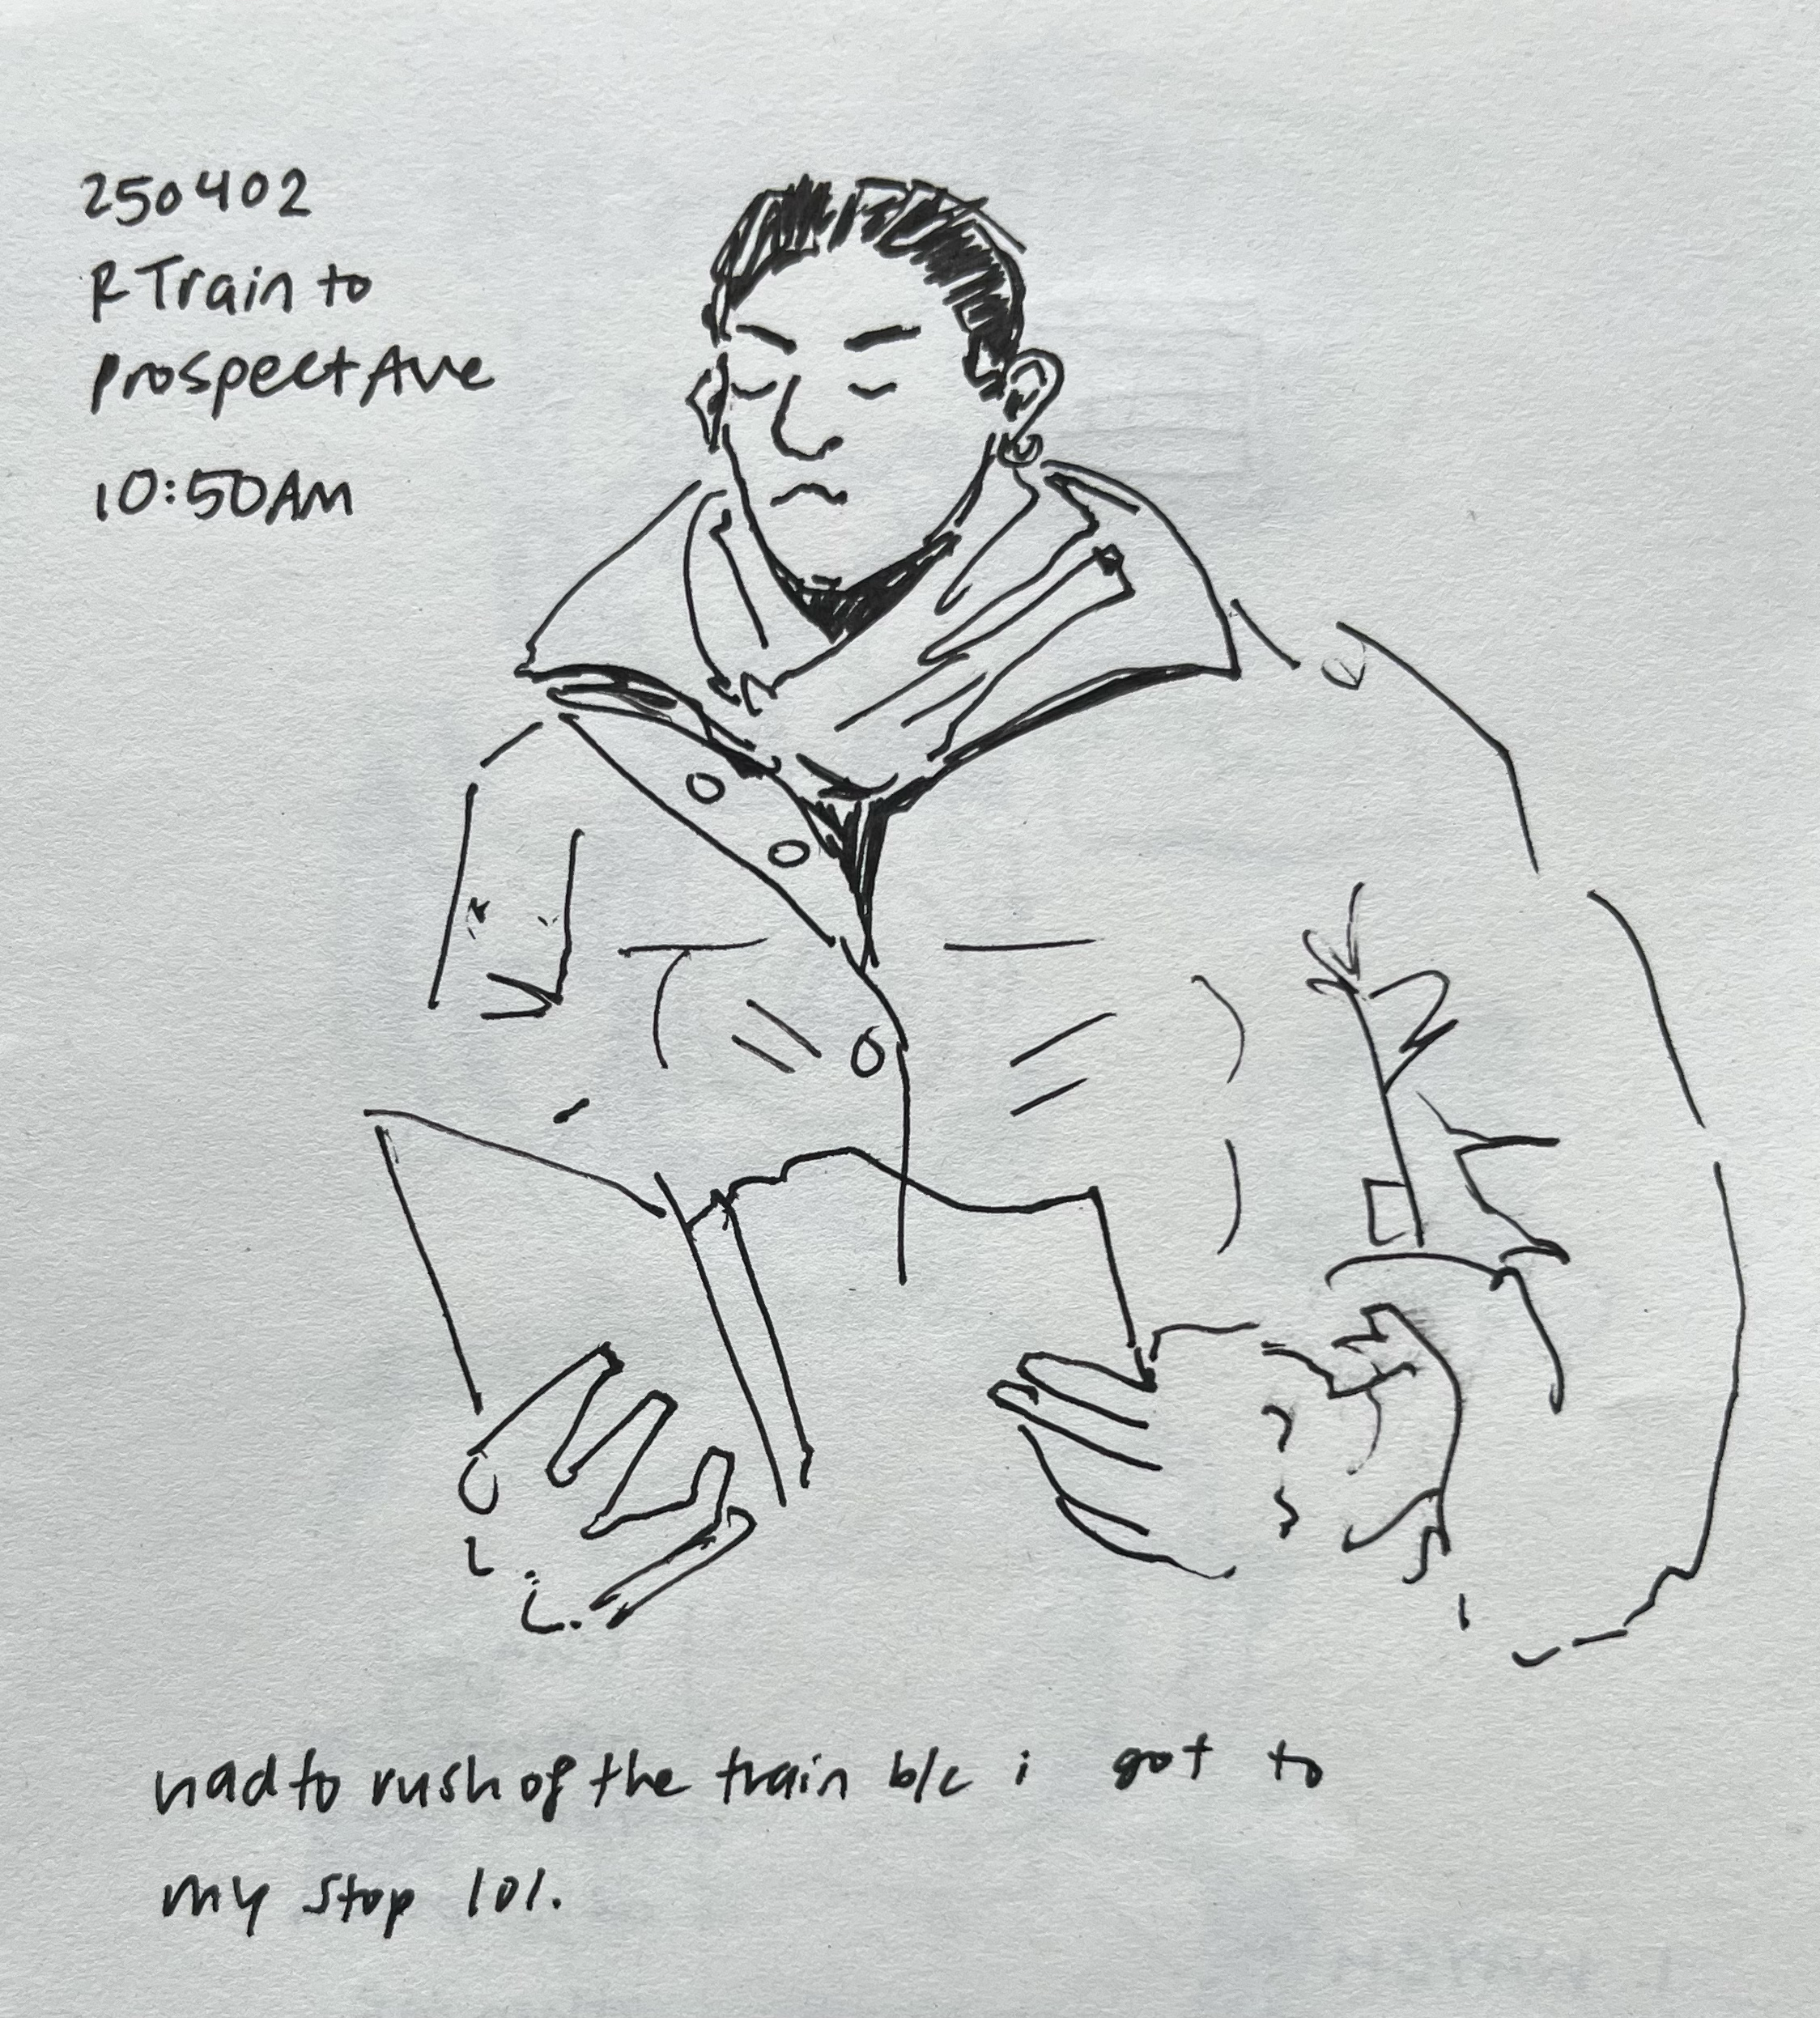 250402
R Train to
Prospect Ave
10:50AM
had to rush of the train b/c i got to
my stop lol.